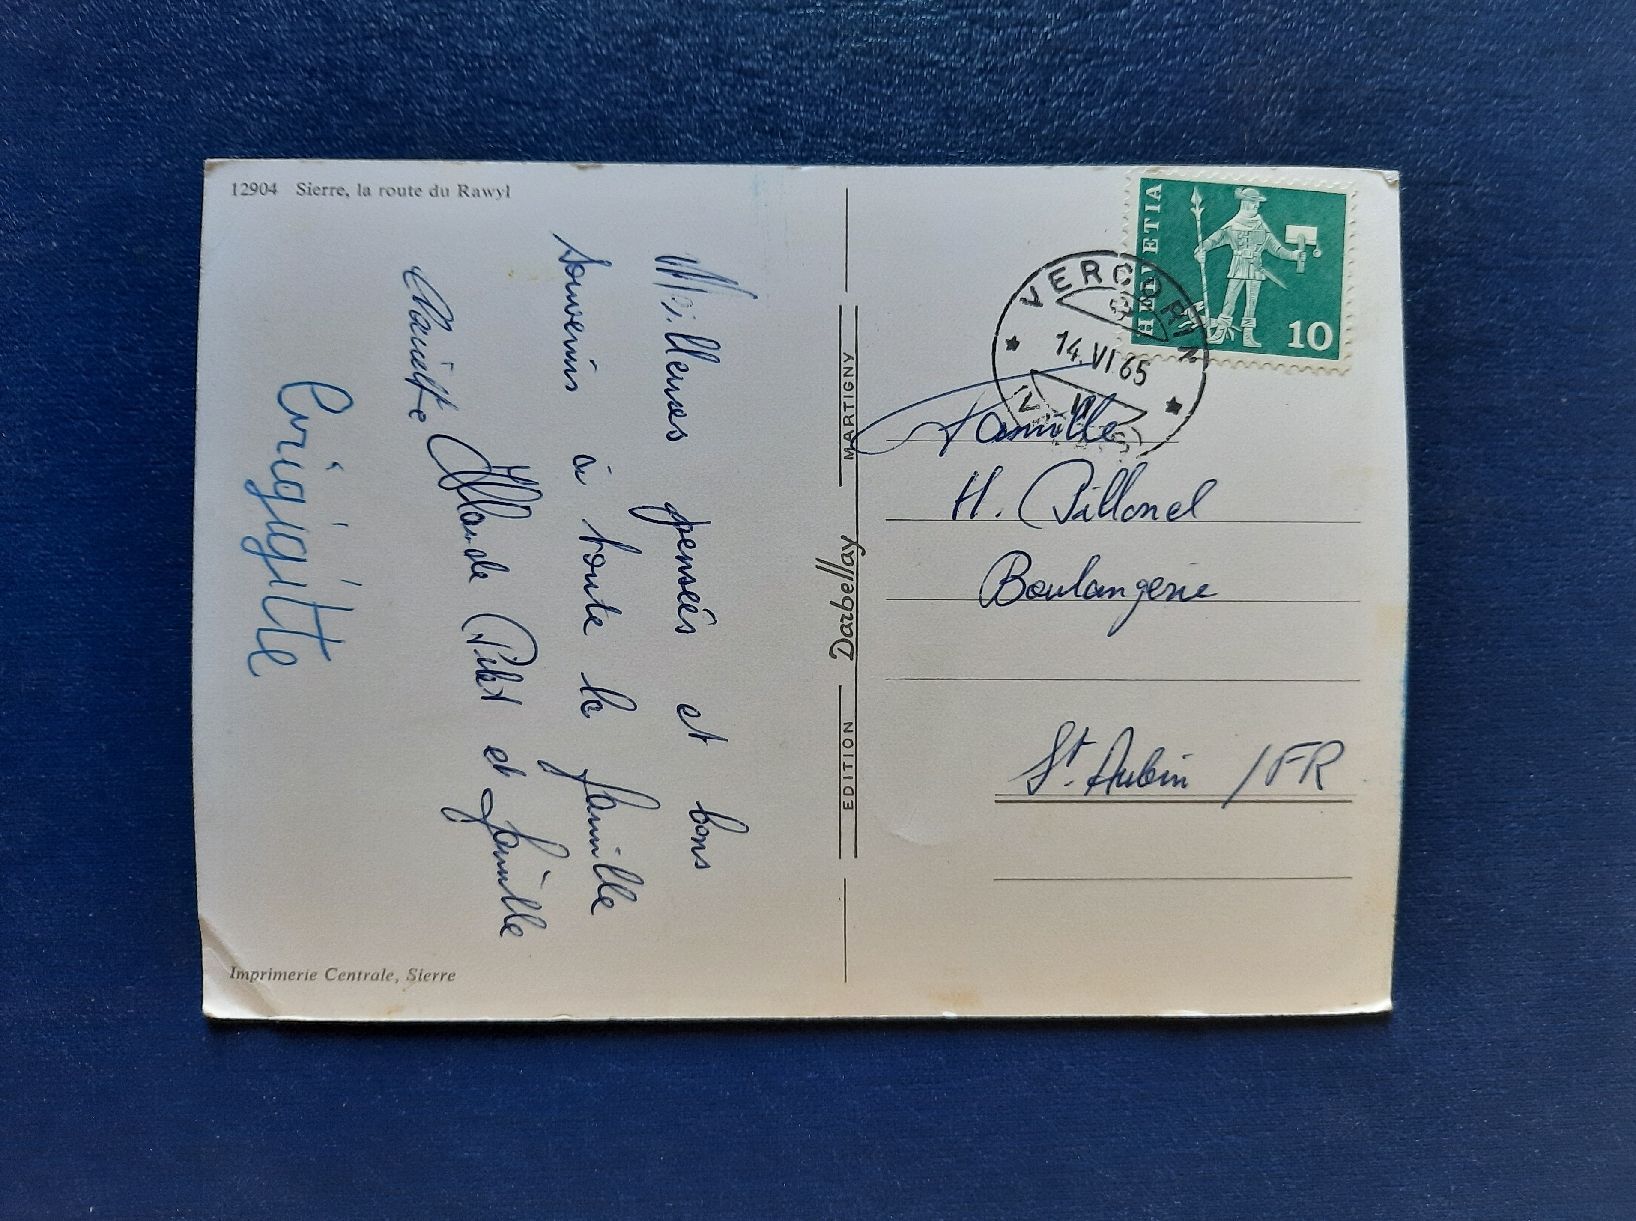 12904 Sierre, la route du Rawyl
Meilleures pensées et bons
souvenirs à toute la famille
Pilet et famille
Brigitte
Imprimerie Centrale, Sierre
EDITION Darbellay MARTIGNY
HELVETIA
10
VERCORIN
14.VI 65
Famille
H. Pillonel
Boulangerie
St. Aubin /FR